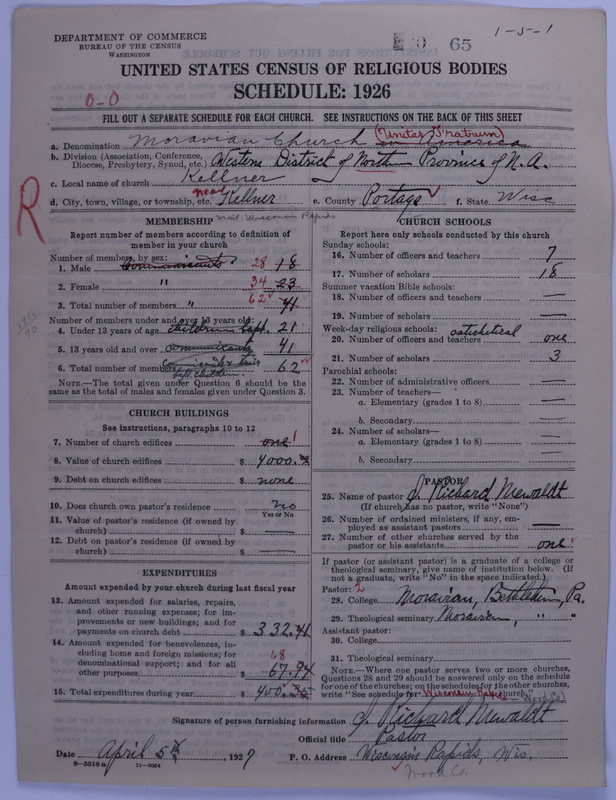 1-5-1
DEPARTMENT OF COMMERCE
BUREAU OF THE CENSUS
WASHINGTON
65
UNITED STATES CENSUS OF RELIGIOUS BODIES
SCHEDULE: 1926
0-0
FILL OUT A SEPARATE SCHEDULE FOR EACH CHURCH. SEE INSTRUCTIONS ON THE BACK OF THIS SHEET
(Unitas Fratrum)
a. Denomination Moravian Church in America
b. Division (Association, Conference, Diocese, Presbytery, Synod, etc.) Western District of North Province of N. A.
c. Local name of church Kellner
d. City, town, village, or township, etc. near Kellner e. County Portage f. State Wisc
R
mail Wisconsin Rapids
MEMBERSHIP
Report number of members according to definition of
member in your church
Number of members, by sex:
1. Male communicants 28 18
2. Female " 34 23
3. Total number of members " 62 41
Number of members under and over 13 years old:
4. Under 13 years of age children bapt. 21
5. 13 years old and over communicants 41
6. Total number of members 62
NOTE.—The total given under Question 6 should be the
same as the total of males and females given under Question 3.
CHURCH BUILDINGS
See instructions, paragraphs 10 to 12
7. Number of church edifices one 1
8. Value of church edifices $ 4000.
9. Debt on church edifices $ none
10. Does church own pastor's residence no
Yes or No
11. Value of pastor's residence (if owned by
church) $ —
12. Debt on pastor's residence (if owned by
church) $ —
EXPENDITURES
Amount expended by your church during last fiscal year
13. Amount expended for salaries, repairs,
and other running expenses; for im-
provements or new buildings; and for
payments on church debt $ 332.41
14. Amount expended for benevolences, in-
cluding home and foreign missions; for
denominational support; and for all
68
other purposes $ 67.94
15. Total expenditures during year $ 400.
CHURCH SCHOOLS
Report here only schools conducted by this church
Sunday schools:
16. Number of officers and teachers 7
17. Number of scholars 18
Summer vacation Bible schools:
18. Number of officers and teachers —
19. Number of scholars —
Week-day religious schools: catechetical
20. Number of officers and teachers one
21. Number of scholars 3
Parochial schools:
22. Number of administrative officers —
23. Number of teachers—
a. Elementary (grades 1 to 8) —
b. Secondary —
24. Number of scholars—
a. Elementary (grades 1 to 8) —
b. Secondary —
PASTOR
25. Name of pastor J. Richard Mewaldt
(If church has no pastor, write "None")
26. Number of ordained ministers, if any, em-
ployed as assistant pastors —
27. Number of other churches served by the
pastor or his assistants one
If pastor (or assistant pastor) is a graduate of a college or
theological seminary, give name of institution below. (If
not a graduate, write "No" in the space indicated.)
Pastor: 2
28. College Moravian, Bethlehem, Pa.
29. Theological seminary Moravian, " "
Assistant pastor:
30. College
31. Theological seminary
NOTE.—Where one pastor serves two or more churches,
Questions 28 and 29 should be answered only on the schedule
for one of the churches; on the schedules for the other churches,
write "See schedule for Wisconsin Rapids church." Wood Co.
Signature of person furnishing information J. Richard Mewaldt
Official title Pastor
Date April 5th, 1927 P. O. Address Wisconsin Rapids, Wis.
8—5318a 11—9034
Wood Co.